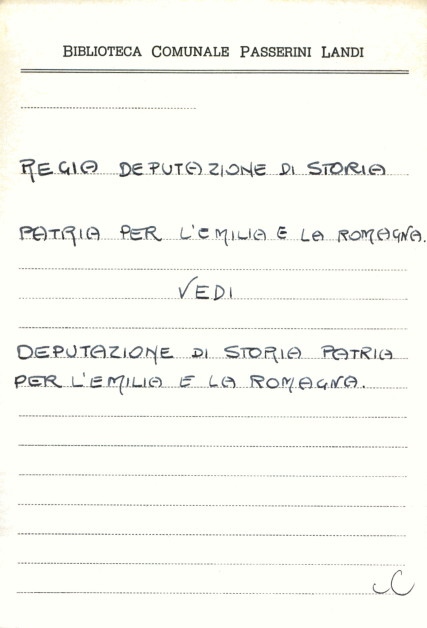 BIBLIOTECA COMUNALE PASSERINI LANDI
REGIA DEPUTAZIONE DI STORIA
PATRIA PER L'EMILIA E LA ROMAGNA.
VEDI
DEPUTAZIONE DI STORIA PATRIA
PER L'EMILIA E LA ROMAGNA.